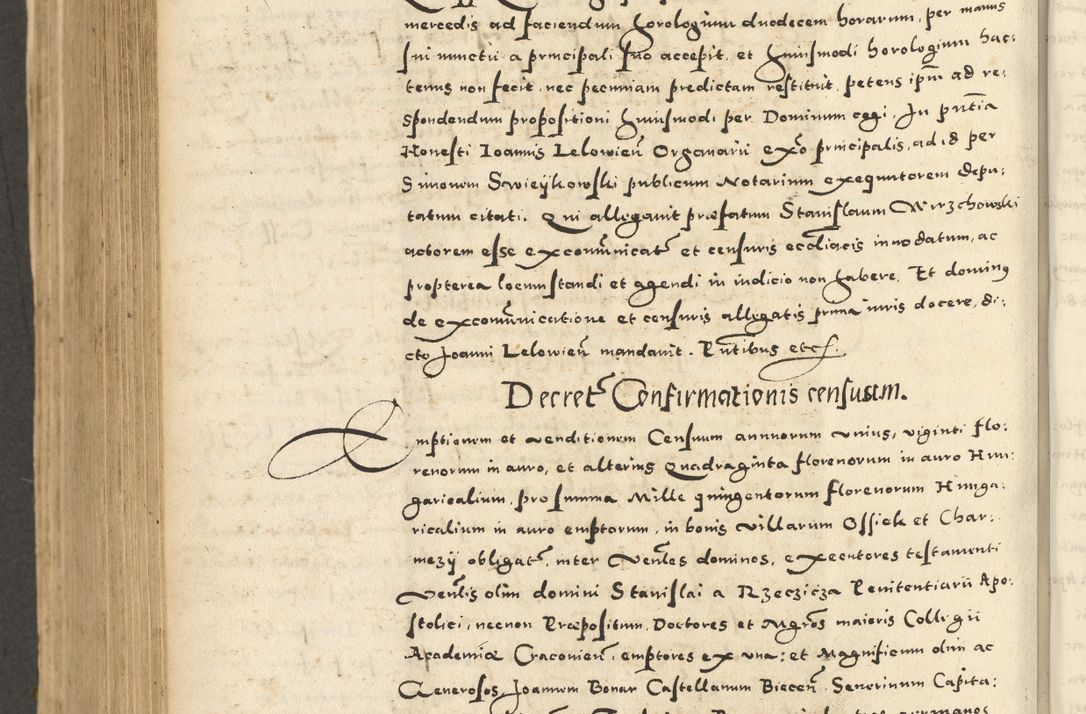 mercedis ad faciendum horologium duodecem horarum, per manus
sui nunctii a principali suo accepit, et huiusmodi horologium hac:
tenus non fecit, nec pecuniam predictam restituit, petens ipm̃ ad re:
spondendum propositioni huiusmodi per Dominum cogi. In pñtia
Honesti Ioannis Lelowień Organarii ex° principalis, ad id per
Simonem Swieykowski publicum Notarium exequutorem depu:
tatum citati. Qui allegauit præfatum Stanislaum Wirzchowski
actorem esse excom̃unicat et censuris eccl̃iacis innodatum, ac
propterea locum standi et agendi in iudicio non habere. Et dominus
de excom̃unicatione et censuris allegatis prima iuris docere, di:
cto Joanni Lelowień mandauit. Pñtibus etc.
Decret Confirmationis censuum.
Emptionem et venditionem Censuum annuorum vnius, viginti flo:
renorum in auro, et alterius Quadraginta florenorum in auro Hun:
garicalium, pro summa Mille quingentorum florenorum Hunga:
ricalium in auro emptorum, in bonis villarum Ossiek et Char:
mezÿ obligat, inter Ven̄les dominos, executores testamenti
Ven̄lis olim domini Stanislai a Rzeczicza Penitentiarii Apo:
stolici, necnon Præpositum, Doctores et Mgr̃os maioris Collegii
Academiæ Cracovień, emptores ex vna: et Magnificum olim ac
Generosos, Joannem Bonar Castellanum Biecen̄, Seuerinum Capita:
germanos